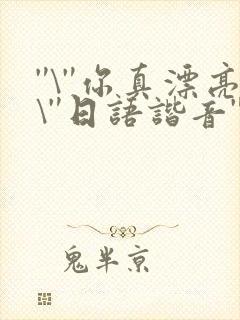 "\"你真漂亮
\"日語諧音"
鬼半京